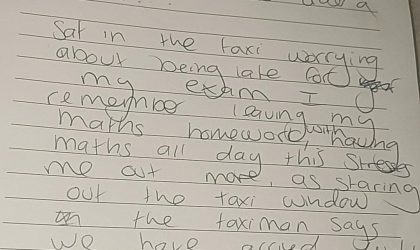 a
Sat in the taxi worrying
about being late for
my exam I
remember leaving my
maths homework, with having
maths all day this stresses
me out more, as staring
out the taxi window
the taximan says
we have arrived